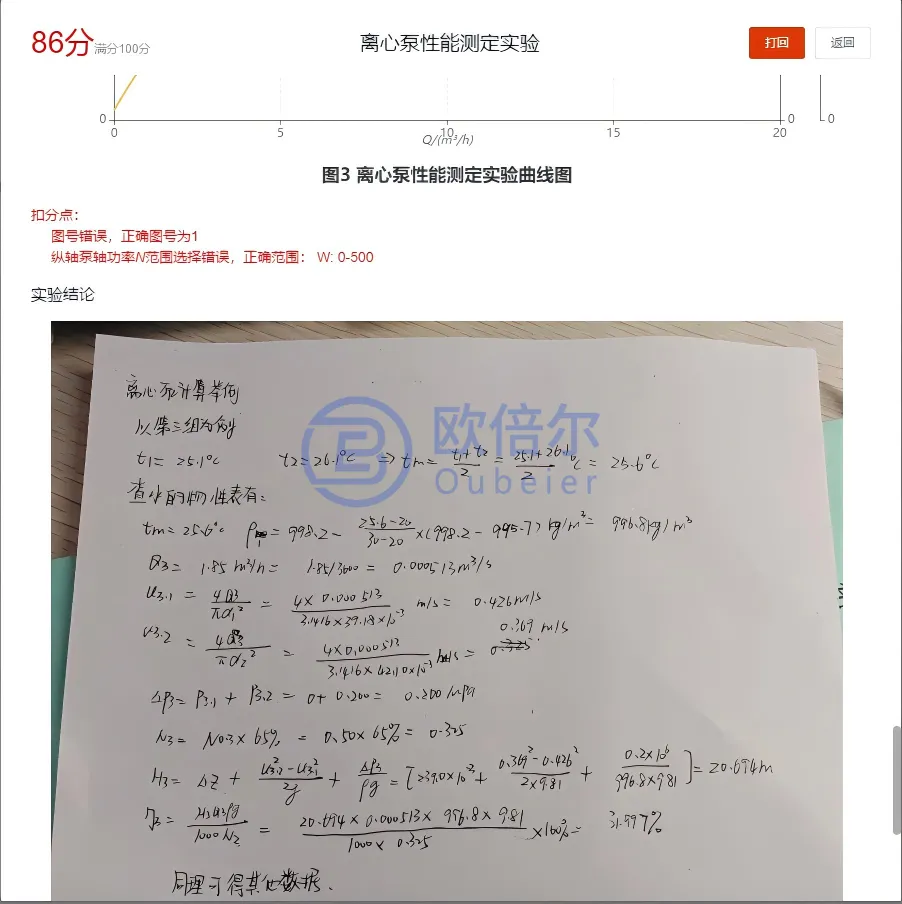 86分满分100分
离心泵性能测定实验
打回
返回
0
0
0
0
5
10
15
20
Q/(m³/h)
图3 离心泵性能测定实验曲线图
扣分点：
图号错误，正确图号为1
纵轴泵轴功率N范围选择错误，正确范围： W: 0-500
实验结论
欧倍尔
Oubeier
离心泵计算举例
以第三组为例
t1= 25.1℃ t2=26.1℃ ⇒ tm= (t1+t2)/2 = (25.1+26.1)/2 ℃ = 25.6℃
查水的物性表有：
tm=25.6℃ ρ = 998.2 - (25.6-20)/(30-20) ×(998.2-995.7) kg/m³ = 996.8kg/m³
Q3= 1.85 m³/h = 1.85/3600 = 0.000513m³/s
u3.1 = 4Q3/πd1² = (4×0.000513)/(3.1416×39.18×10⁻³) m/s = 0.426m/s
u3.2 = 4Q3/πd2² = (4×0.000513)/(3.1416×42.10×10⁻³) m/s = 0.369 m/s
ΔP3= P3.1 + P3.2 = 0+0.200= 0.200 MPa
N3= N03×65% = 0.50×65%= 0.325
H3= ΔZ + (u3.2²-u3.1²)/2g + ΔP3/ρg = [239.0×10⁻³+ (0.369²-0.426²)/(2×9.81) + (0.2×10⁶)/(996.8×9.81)]= 20.694m
η3= H3Q3ρg/1000N3 = (20.694×0.000513×996.8×9.81)/(1000×0.325) ×100%= 31.997%
同理可得其他数据.